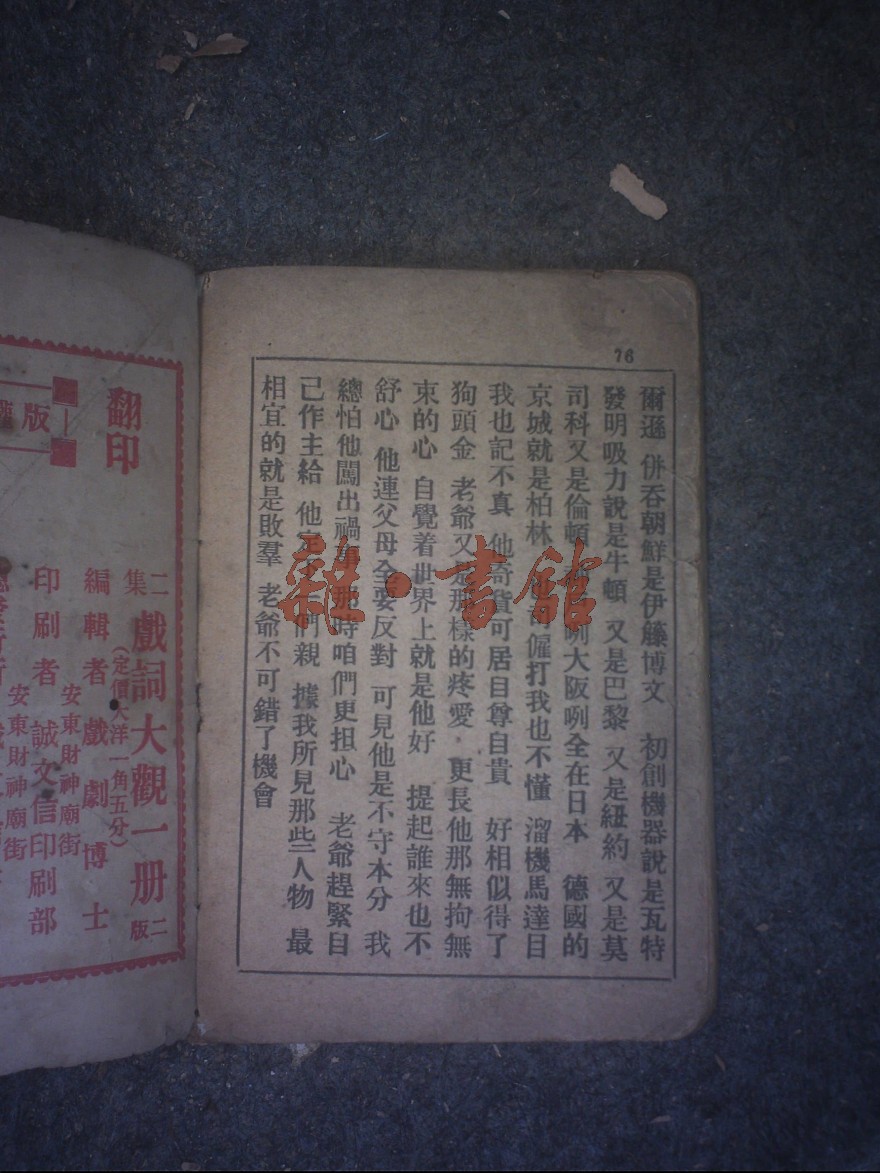 76
爾遜 併吞朝鮮是伊籐博文 初創機器說是瓦特
發明吸力說是牛頓 又是巴黎 又是紐約 又是莫
司科又是倫頓 咧大阪咧全在日本 德國的
京城就是柏林 僱打我也不懂 溜機馬達目
我也記不真 他奇貨可居自尊自貴 好相似得了
狗頭金 老爺又是那樣的疼愛 更長他那無拘無
束的心 自覺着世界上就是他好 提起誰來也不
舒心 他連父母全要反對 可見他是不守本分 我
總怕他闖出禍 那時咱們更担心 老爺趕緊自
己作主給 他定 們親 據我所見那些人物 最
相宜的就是敗羣 老爺不可錯了機會
雜·書館
翻印
版
二集 戲詞大觀一册 二版
(定價大洋一角五分)
編輯者 戲劇博士
安東財神廟街
印刷者 誠文信印刷部
安東財神廟街